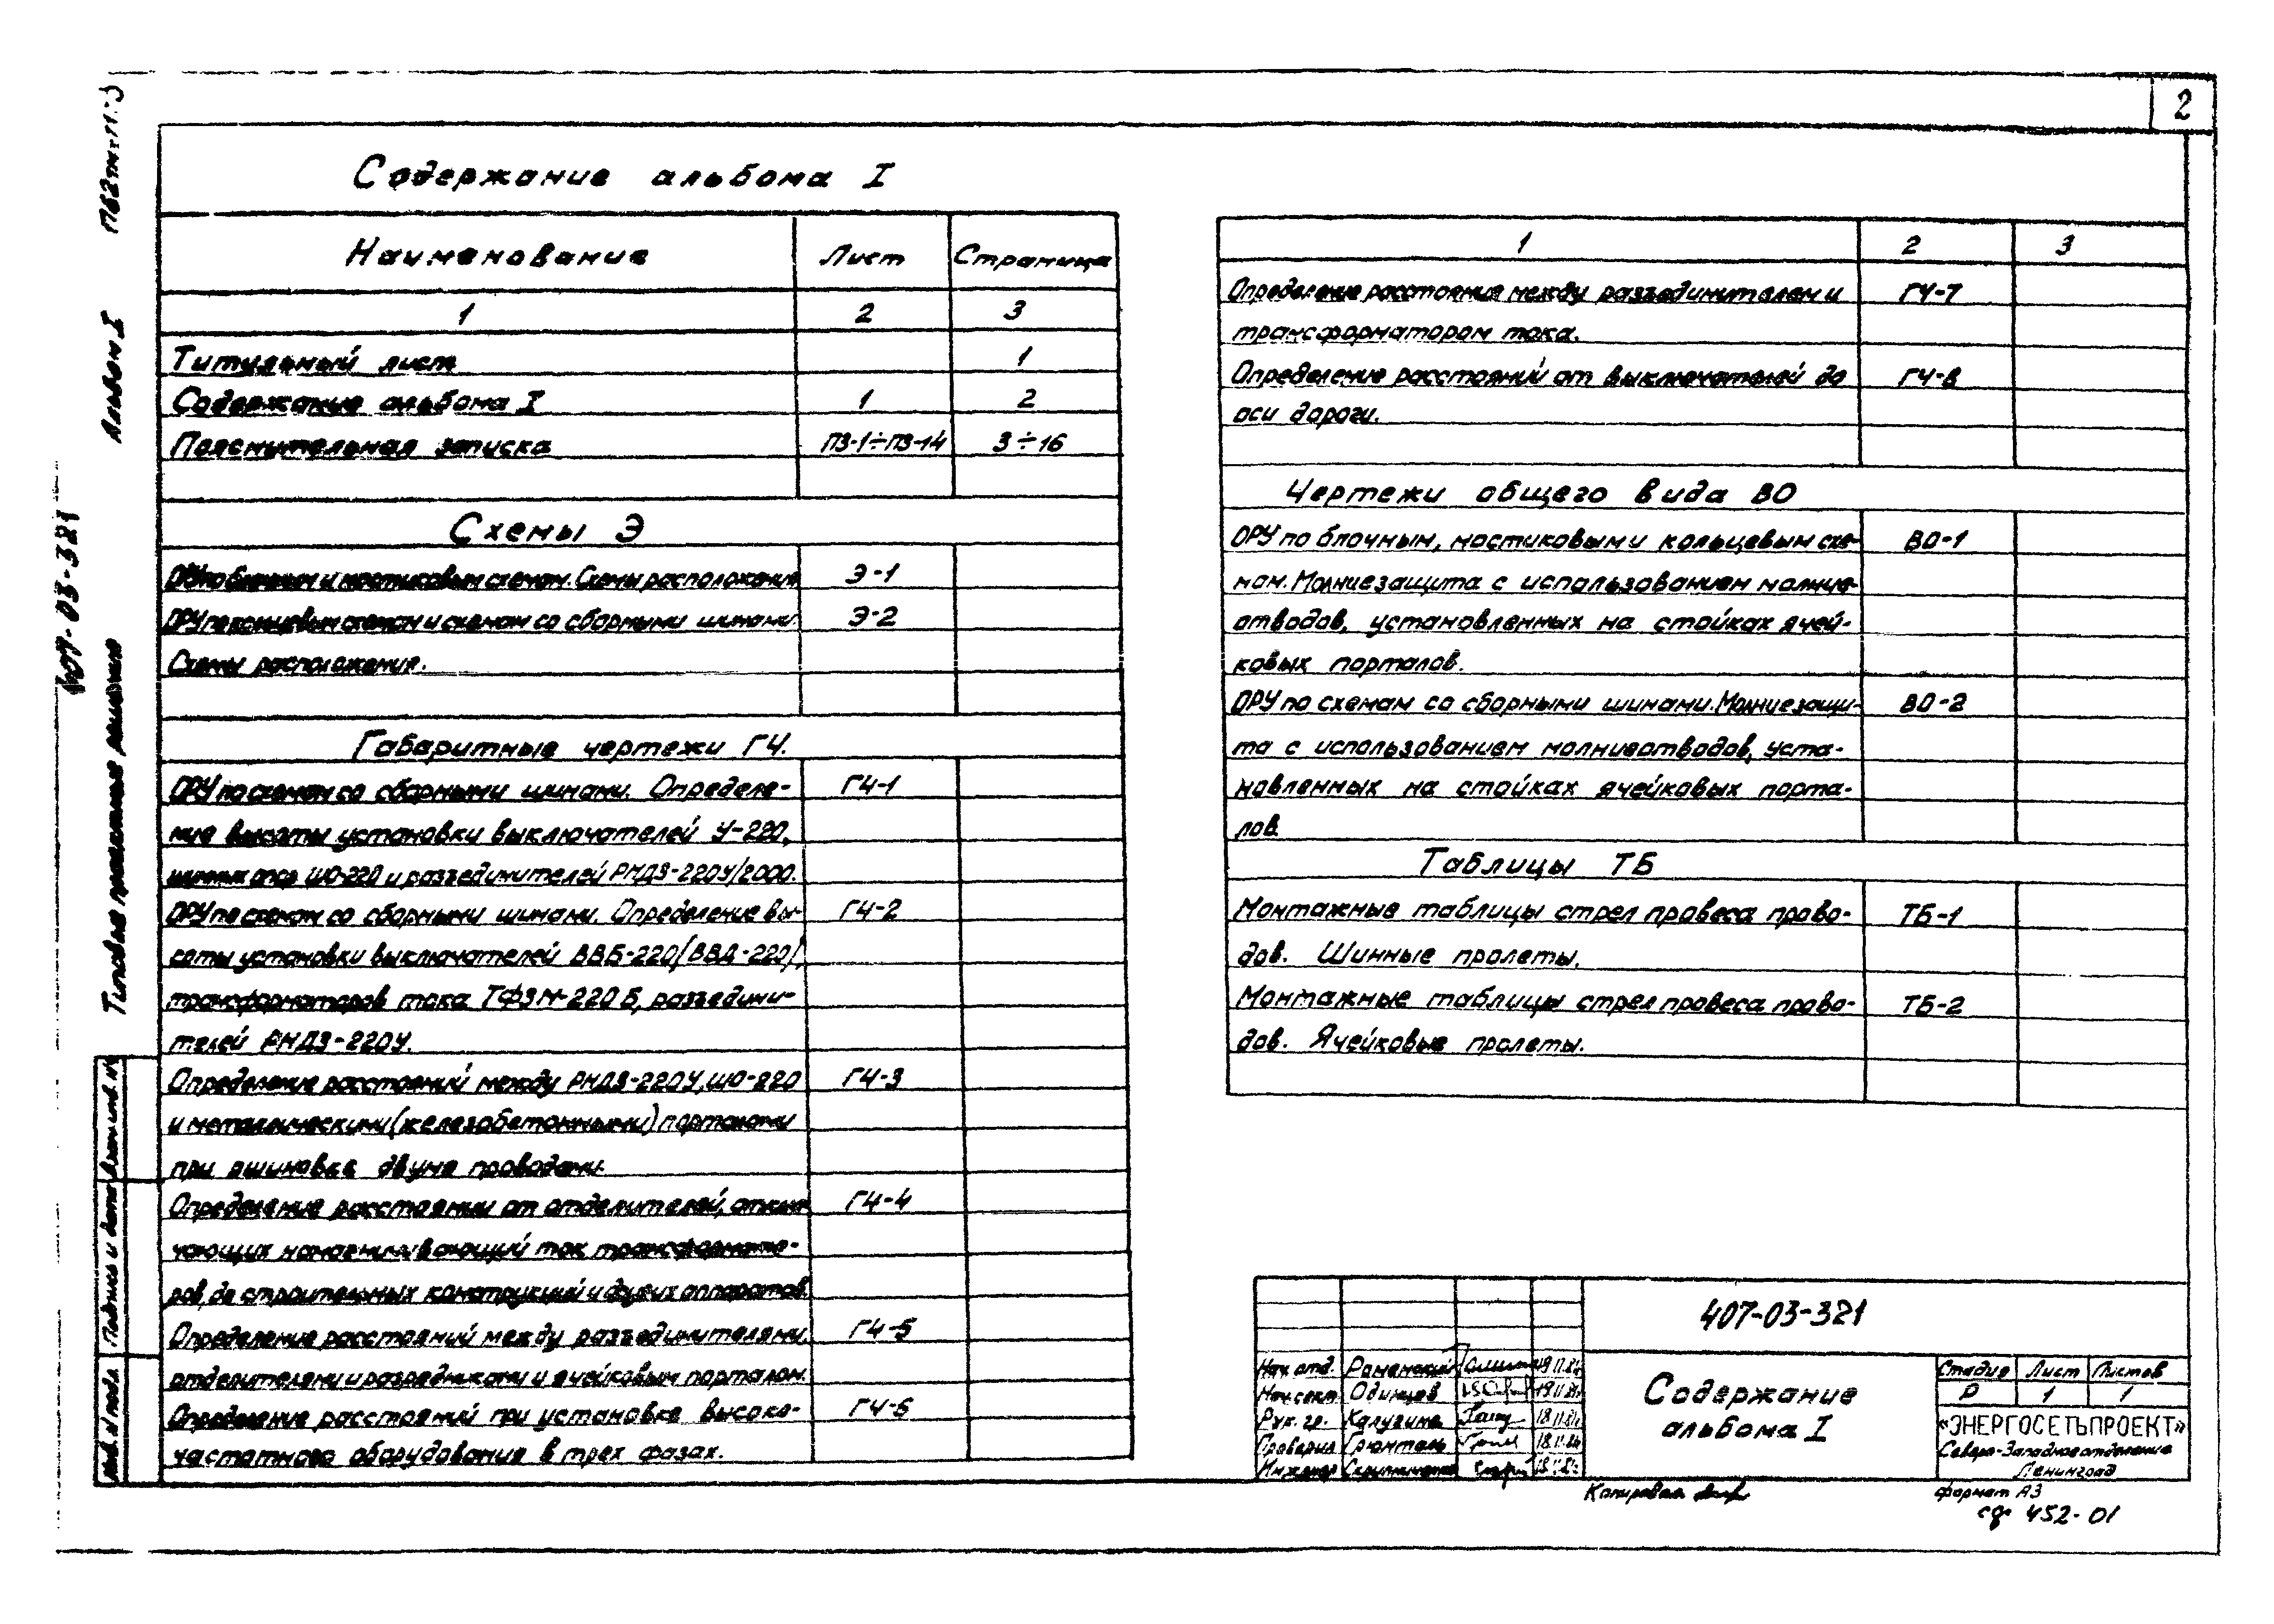 2
Содержание альбома I
Наименование Лист Страница
1 2 3
Титульный лист 1
Содержание альбома I 1 2
Пояснительная записка ПЗ-1÷ПЗ-14 3÷16
Схемы Э
ОРУ по блочным и мостиковым схемам. Схемы расположения Э-1
ОРУ по кольцевым схемам и схемам со сборными шинами. Э-2
Схемы расположения.
Габаритные чертежи ГЧ.
ОРУ по схемам со сборными шинами. Определе- ГЧ-1
ние высоты установки выключателей У-220,
шинных опор ШО-220 и разъединителей РНДЗ-220У/2000.
ОРУ по схемам со сборными шинами. Определение вы- ГЧ-2
соты установки выключателей ВВБ-220/ВВД-220/,
трансформаторов тока ТФЗМ-220Б, разъедини-
телей РНДЗ-220У.
Определение расстояний между РНДЗ-220У, ШО-220 ГЧ-3
и металлическими (железобетонными) порталами
при ошиновке двумя проводами.
Определение расстояний от отделителей, отклю- ГЧ-4
чающих намагничивающий ток трансформато-
ров, до строительных конструкций и других аппаратов.
Определение расстояний между разъединителями, ГЧ-5
отделителями и разрядниками и ячейковым порталом.
Определение расстояний при установке высоко- ГЧ-6
частотного оборудования в трех фазах.
1 2 3
Определение расстояния между разъединителем и ГЧ-7
трансформатором тока.
Определение расстояний от выключателей до ГЧ-8
оси дороги.
Чертежи общего вида ВО
ОРУ по блочным, мостиковым и кольцевым схе- ВО-1
мам. Молниезащита с использованием молние-
отводов, установленных на стойках ячей-
ковых порталов.
ОРУ по схемам со сборными шинами. Молниезащи- ВО-2
та с использованием молниеотводов, уста-
новленных на стойках ячейковых порта-
лов.
Таблицы ТБ
Монтажные таблицы стрел провеса прово- ТБ-1
дов. Шинные пролеты.
Монтажные таблицы стрел провеса прово- ТБ-2
дов. Ячейковые пролеты.
407-03-321
Нач. отд. Роменский
Нач. сект. Одинцов
Рук. гр. Калугина
Проверил Грюнталь
Инженер
Содержание
альбома I
Стадия Лист Листов
Р 1 1
«ЭНЕРГОСЕТЬПРОЕКТ»
Северо-Западное отделение
Ленинград
Копировал
формат А3
452-01
407-03-321
Типовые проектные решения
Альбом I
Инв. № подл.
Подпись и дата
Взам. инв. №